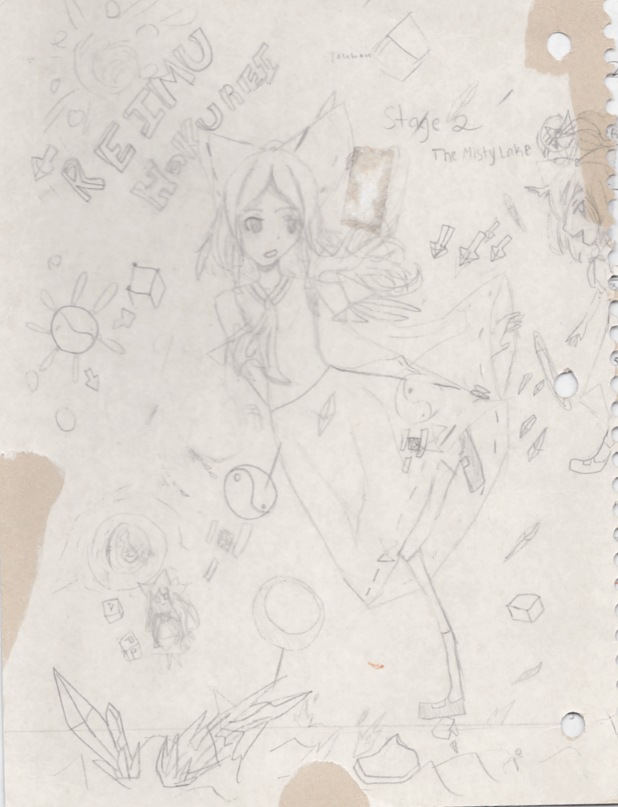 REIMU
HAKUREI
Stage 2
The Misty Lake
P